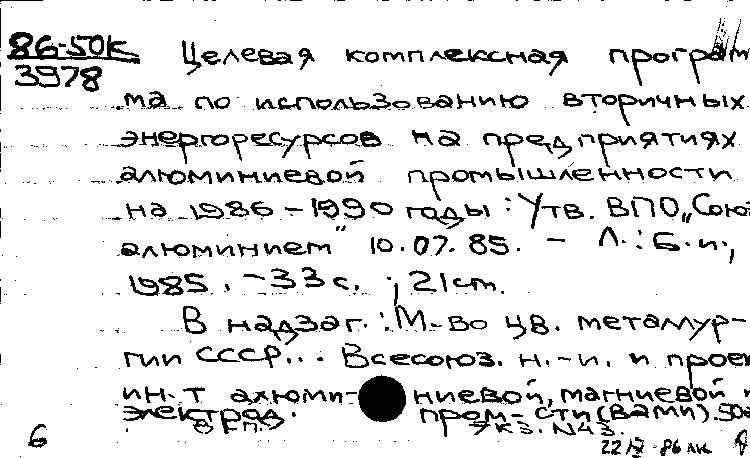 86-50к
3978
Целевая комплексная програм
ма по использованию вторичных
энергоресурсов на предприятиях
алюминиевой промышленности
на 1986-1990 годы: Утв. ВПО „Союз
алюминием" 10.07.85. - Л.: Б.и.,
1985. -33 с. ; 21 см.
В надзаг.: М-во цв. металлур-
гии СССР... Всесоюз. н.-и. и проек
ин-т алюми- ниевой, магниевой и
электрод. пром-сти (ВАМИ). 50
Экз. N43.
6